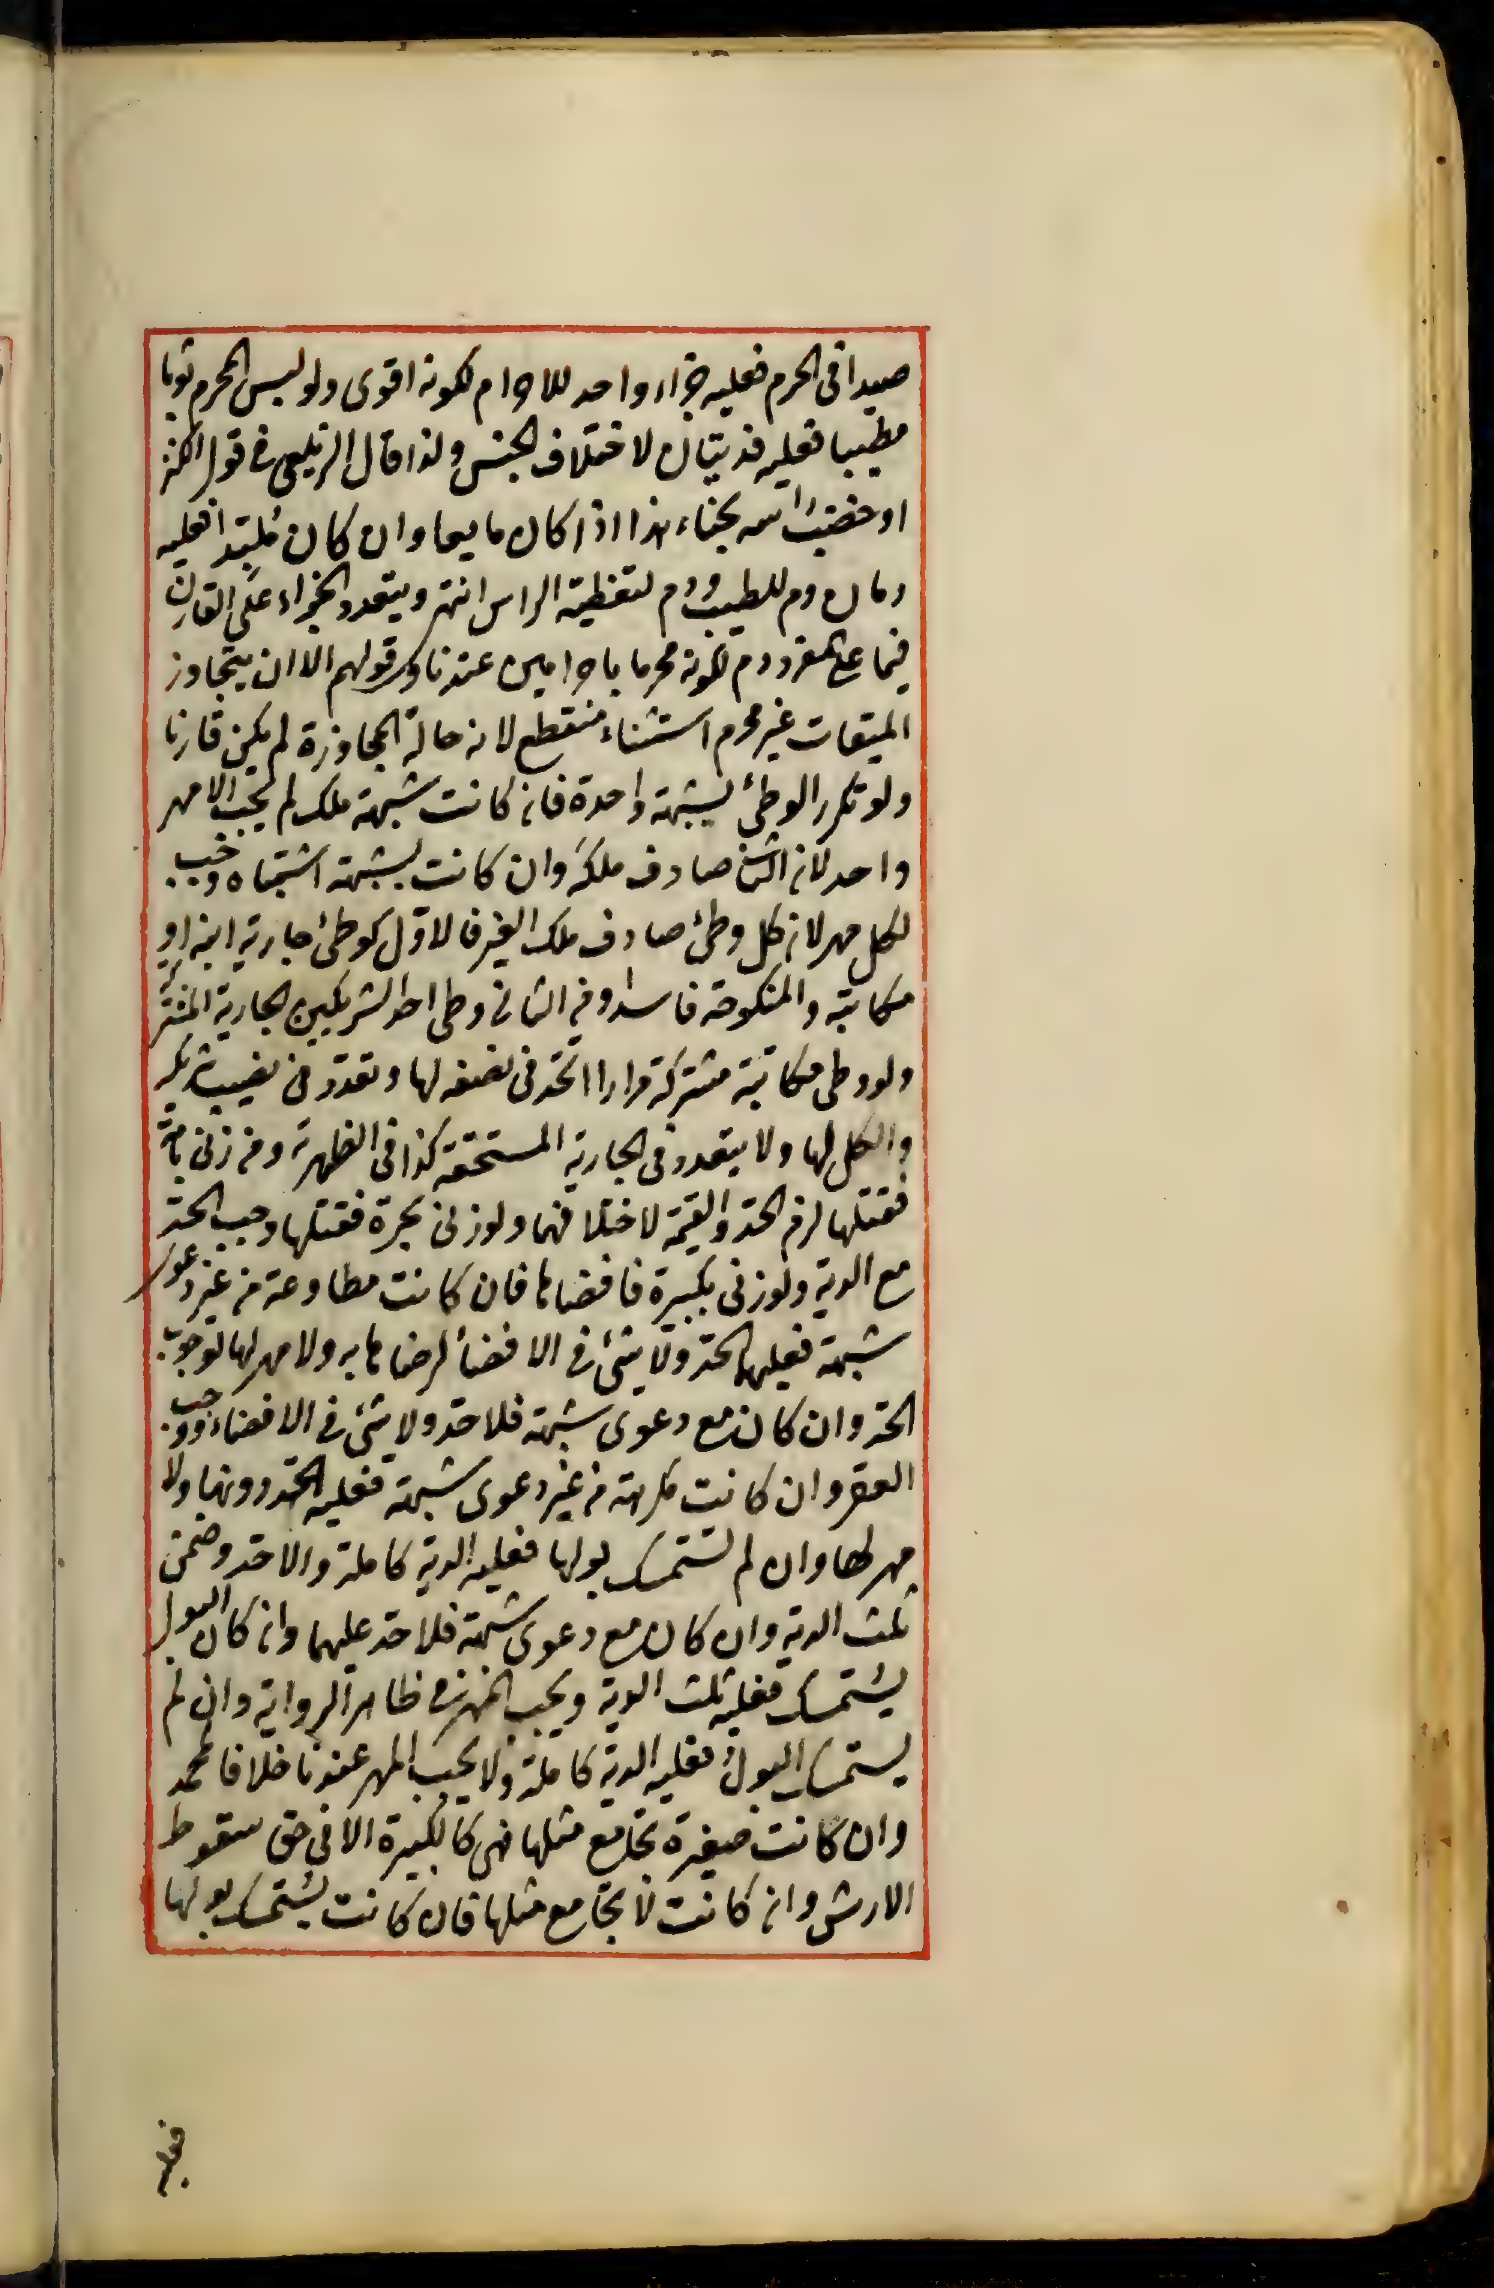 صيدا فى الحرم فعليه جزاء واحد للاحرام لكونه اقوى ولو لبس المحرم ثوبا
مطيبا فعليه فديتان لاختلاف الجنس ولذا قال الزيلعى فى قول الكنز
او خضب راسه بحناء هذا اذا كان مايعا وان كان ملبدا فعليه
دمان دم للطيب ودم لتغطية الراس انتهى ويتعدد الجزاء على القارن
فيما على المفرد دم لكونه محرما باحرامين عندنا وقولهم الا ان يتجاوز
الميقات غير محرم استثناء منقطع لانه حالة المجاوزة لم يكن قارنا
ولو تكرر الوطئ بشبهة واحدة فان كانت شبهة ملك لم يجب الا مهر
واحد لان الثانى صادف ملكه وان كانت بشبهة اشتباه وجب
لكل مهر لان كل وطئ صادف ملك الغير فالاول كوطئ جارية ابنه او
مكاتبه والمنكوحة فاسدا وفى الثانى وطى احد الشريكين الجارية المشتركة
ولو وطى مكاتبة مشتركة مرارا اتحد فى نصفه لها وتعدد فى نصيب شريكه
والكل لها ولا يتعدد فى الجارية المستحقة كذا فى الظهيرية ومن زنى بامة
فقتلها لزم الحد والقيمة لاختلافهما ولو زنى بحرة فقتلها وجب الحد
مع الدية ولو زنى بكبيرة فافضاها فان كانت مطاوعة من غير دعوى
شبهة فعليهما الحد ولا شئ فى الافضاء لرضاها به ولا مهر لها لوجوب
الحد وان كان مع دعوى شبهة فلا حد ولا شئ فى الافضاء ووجب
العقر وان كانت مكرهة من غير دعوى شبهة فعليه الحد دونها ولا
مهر لها وان لم تستمسك بولها فعليه الدية كاملة والا حد وضمن
ثلث الدية وان كان مع دعوى شبهة فلا حد عليهما وان كان البول
يستمسك فعليه ثلث الدية ويجب المهر فى ظاهر الرواية وان لم
يستمسك البول فعليه الدية كاملة ولا يجب المهر عندنا خلافا لمحمد
وان كانت صغيرة تجامع مثلها فهى كالكبيرة الا فى حق سقوط
الارش وان كانت لا تجامع مثلها فان كانت يستمسك بولها
فعليه